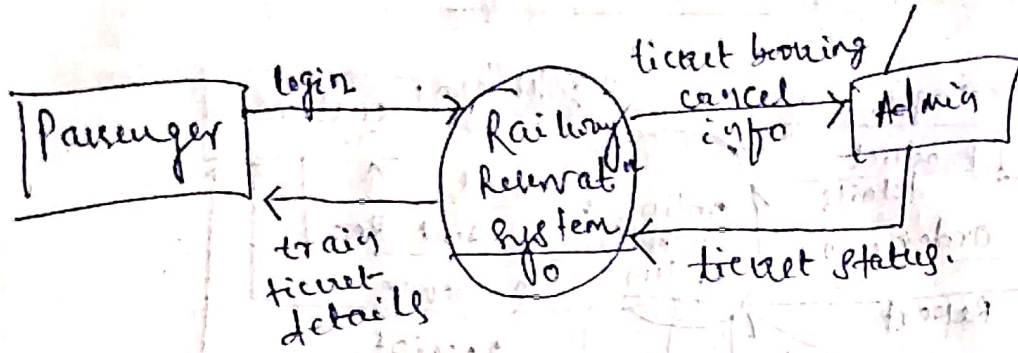 Passenger
login
train
ticket
details
Railway
Reservatn
System
0
ticket booking
cancel
info
Admin
ticket status.